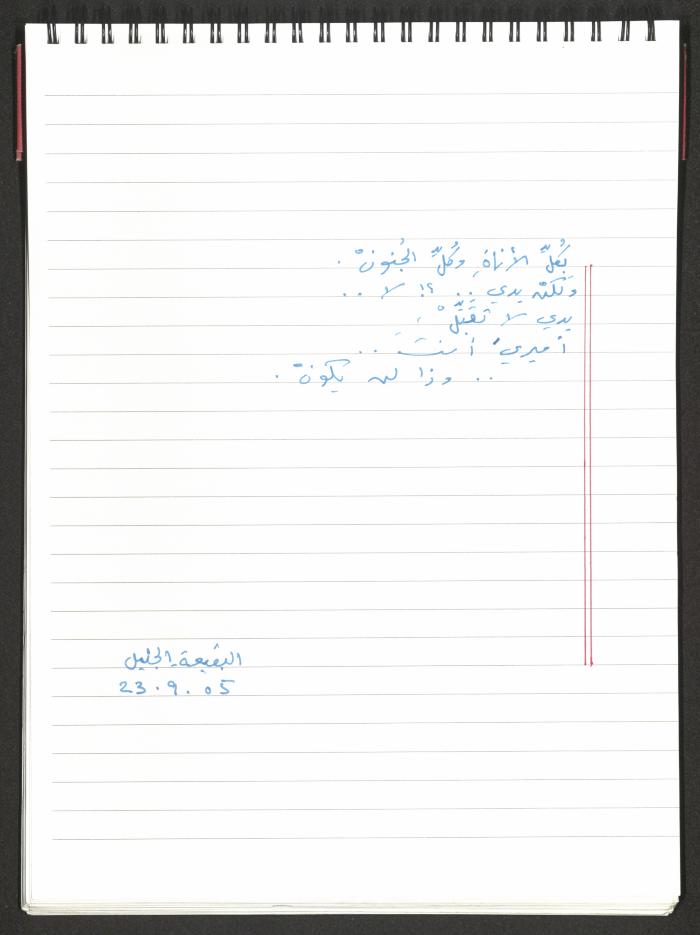 بكُلِّ الأناةِ وكُلِّ الجُنونْ .
ولكنْ يدي .. ؟! لا ..
يدي لا تُقبَّلْ ،
أميري أنتَ ..
.. وذا لن يكونْ .
البقيعة-الجليل
23.9.05